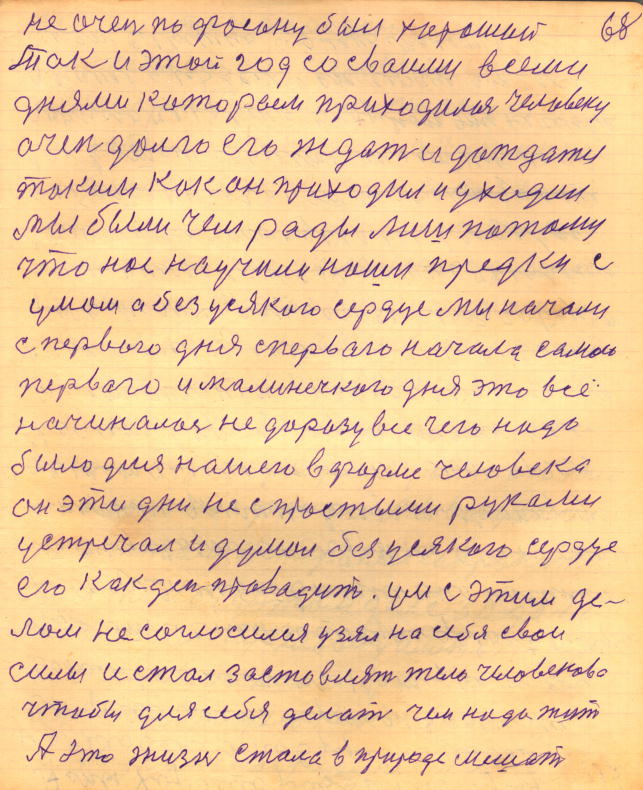 не очен по фасону был хороший 68
Так и этот год со своими всеми
днями которыем приходился человеку
очен долго его ждат и дождати
таким как он приходил и уходил
мы были чем рады лиш потому
что нас научили наши предки с
умом а без усякого сердце мы начали
с первого дня с перваго начала самого
перваго и малинечкого дня это всё
начиналос не доразу все чего надо
было для нашего в форме человека
он эти дни не с простыми руками
устречал и думал без усякого сердце
его как ден провадит. ум с этим де-
лом не согласился узял на себя свои
силы и стал заставлят тело человеково
чтобы для себя делат чем надо жит
А это жизн стала в природе мешат